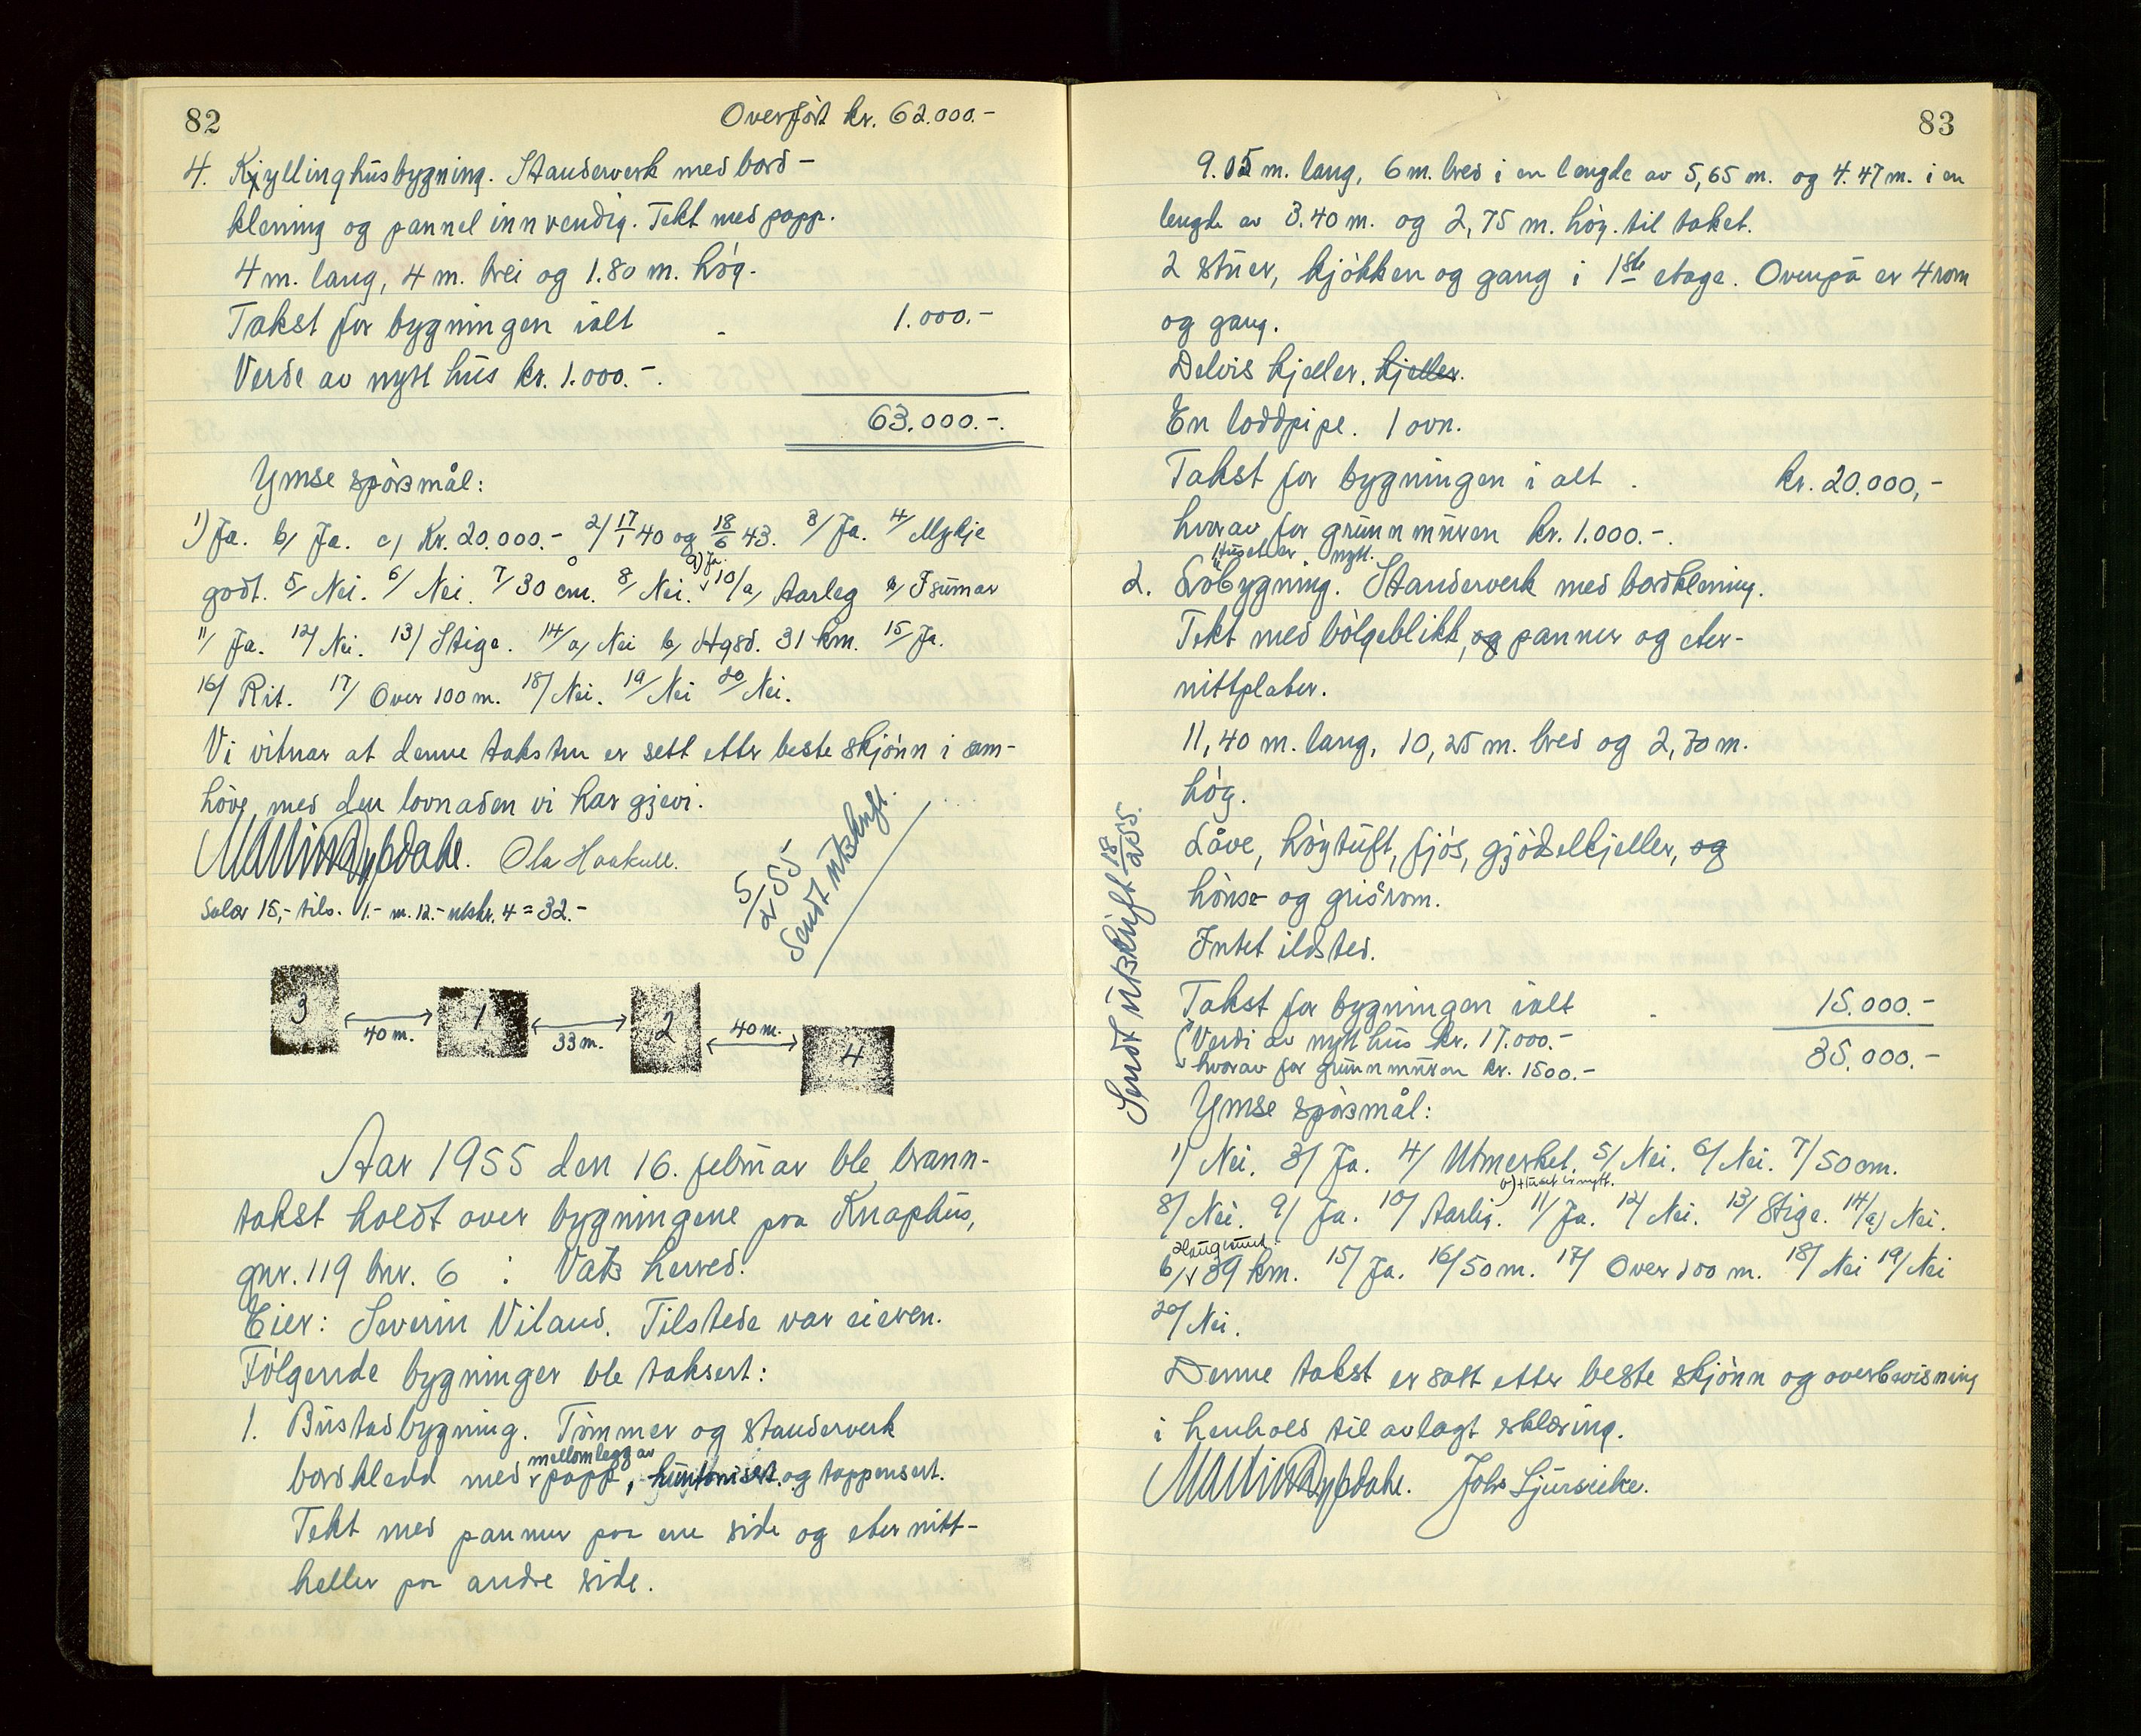 82
Overfört kr. 62.000.-
4. Kyllinghusbygning. Standerverk med bord-
klening og pannel innvendig. Tekt med papp.
4 m. lang, 4 m. brei og 1.80 m. hög.
Takst for bygningen ialt - 1.000.-
Verde av nytt hus kr. 1.000.-.
63.000.-.
Ymse spörsmål:
1) Ja. b, Ja. c, Kr. 20.000.- 2/ 17/1 40 og 18/6 43. 3/ Ja. 4/ Mykje
godt. 5/ Nei. 6/ Nei. 7/ 30 cm. 8/ Nei. 9) Ja. 10/a, Aarleg b, Isumar
11/ Ja. 12/ Nei. 13/ Stige. 14/a, Nei b, Hgsd. 31 km. 15/ Ja.
16/ Rit. 17/ Over 100 m. 18/ Nei. 19/ Nei 20/ Nei.
Vi vitnar at denne taksten er sett etter beste skjönn i sam-
höve med den lovnaden vi har gjevi.
Ola Haakull.
Solær 15,- tils. 1.- m. 12.- utskr. 4 = 32.-
5/2 55
Sendt utskrift.
3 40 m. 1 33 m. 2 40 m. 4
Aar 1955 den 16. februar ble brann-
takst holdt over bygningene paa Knaphus,
gnr. 119 bnr. 6 i Vats herred.
Eier: Severin Viland. Tilstede var eieren.
Fölgende bygninger ble taksert:
1. Bustadbygning. Tömmer og standerverk
bordkledd med mellomlegg av papp, huntonisert og tappensert.
Tekt med panner paa ene side og eternitt-
heller paa andre side.
83
9.05 m. lang, 6 m. bred i en lengde av 5,65 m. og 4.47 m. i en
lengde av 3.40 m. og 2,75 m. hög til taket.
2 stuer, kjökken og gang i 1ste etage. Ovenpå er 4 rom
og gang.
Delvis kjeller. kjeller.
En loddpipe. 1 ovn.
Takst for bygningen i alt . kr. 20.000,-
hvorav for grunnmuren kr. 1.000.-.
Huset er nytt.
2. Löbygning. Standerverk med bordklening.
Tekt med bölgeblikk, og panner og eter-
nittplater.
11,40 m. lang, 10,25 m. bred og 2,70 m.
hög.
Låve, höytuft, fjös, gjödselkjeller, og
hönse- og grisrom.
Intet ildsted.
Takst for bygningen ialt - 15.000.-
Verdi av nytt hus kr. 17.000.-
hvorav for grunnmuren kr. 1500.- 35.000.-
Sendt utskrift 18/2 55.
Ymse spörsmål:
1/ Nei. 3/ Ja. 4/ Utmerket. 5/ Nei. 6/ Nei. 7/ 50 cm.
8/ Nei. 9/ Ja. 10/ Aarlig. b) Huset er nytt. 11/ Ja. 12/ Nei. 13/ Stige. 14/a) Nei.
b, Haugesund 39 km. 15/ Ja. 16/ 50 m. 17/ Over 100 m. 18/ Nei 19/ Nei
20/ Nei.
Denne takst er satt etter beste skjönn og overbevisning
i henhold til avlagt erklæring.